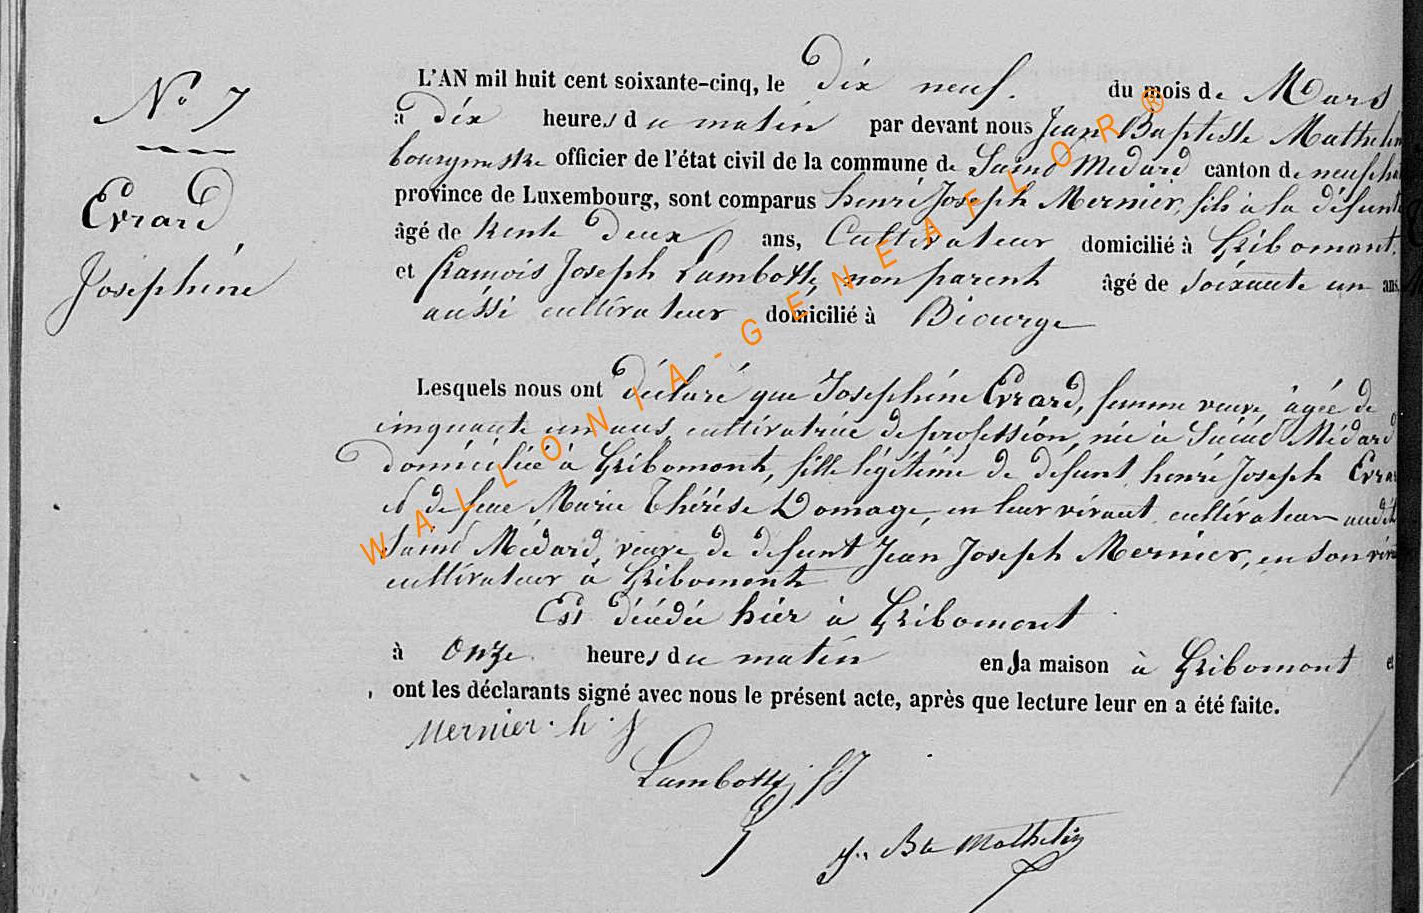 N° 7
Evrard
Joséphine
L'AN mil huit cent soixante-cinq, le dix neuf. du mois de Mars
à dix heures du matin par devant nous Jean Baptiste Mathelin
bourgmestre officier de l'état civil de la commune de Saint Médard canton de neufcha
province de Luxembourg, sont comparus henri Joseph Mernier, fils à la défunte
âgé de trente deux ans, Cultivateur domicilié à Gribomont.
et françois Joseph Lambotte, non parent âgé de soixante un ans
aussi cultivateur domicilié à Biourge
Lesquels nous ont déclaré que Joséphine Evrard, femme veuve, âgée de
cinquante un ans, cultivatrice de profession, née à Saint Médard
domiciliée à Gribomont, fille légitime de défunt henri Joseph Evrar
et de feue Marie Thérèse Domage, en leur vivant cultivateurs audit
Saint Médard, veuve de défunt Jean Joseph Mernier, en son viv
cultivateur à Gribomont
Est décédée hier à Gribomont
à onze heures du matin en sa maison à Gribomont et
ont les déclarants signé avec nous le présent acte, après que lecture leur en a été faite.
Mernier. h. j
Lambotte, f J
J.. Bte Mathelin
WALLONIA-GENEAFLOR®